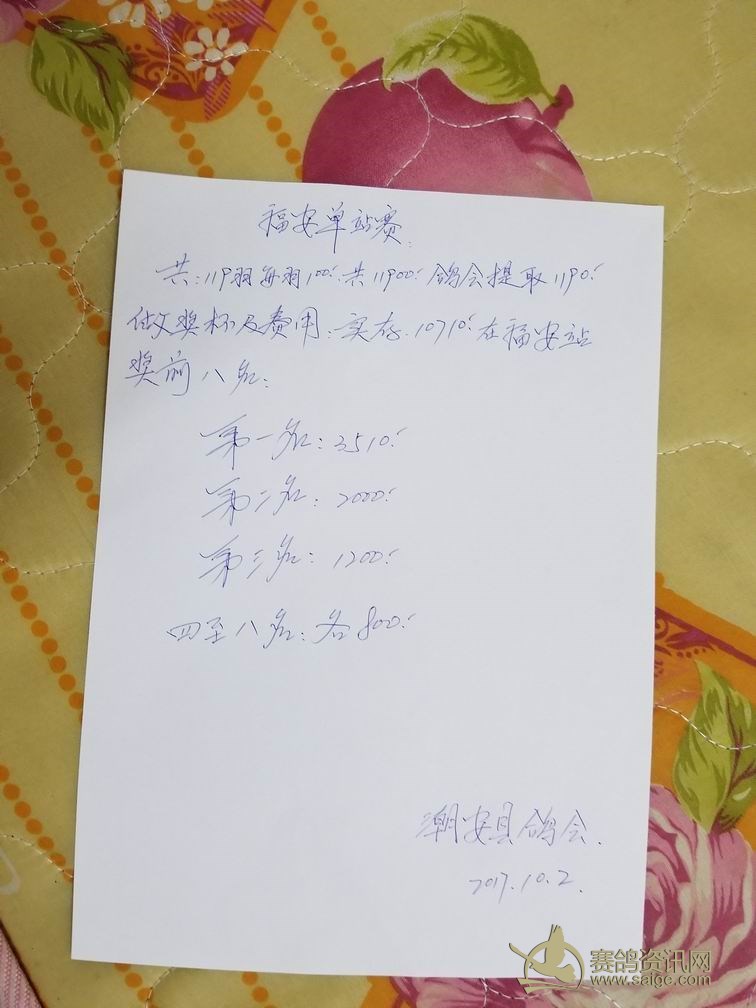 福安单站赛:
共:119羽每羽100.共11900.鸽会提取1190.
做奖杯及费用:实存:10710.在福安站
奖前八名:
第一名:3510.
第二名:2000.
第三名:1200.
四至八名:各800.
潮安县鸽会.
2017.10.2.
赛鸽资讯网
www.saige.com